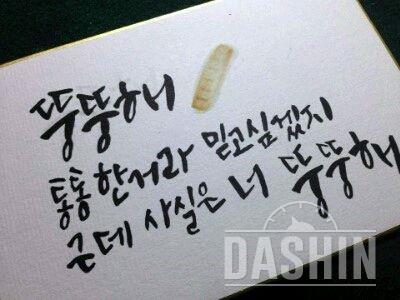 뚱뚱해
통통한거라 믿고싶겠지
근데 사실은 너 뚱뚱해
DASHIN